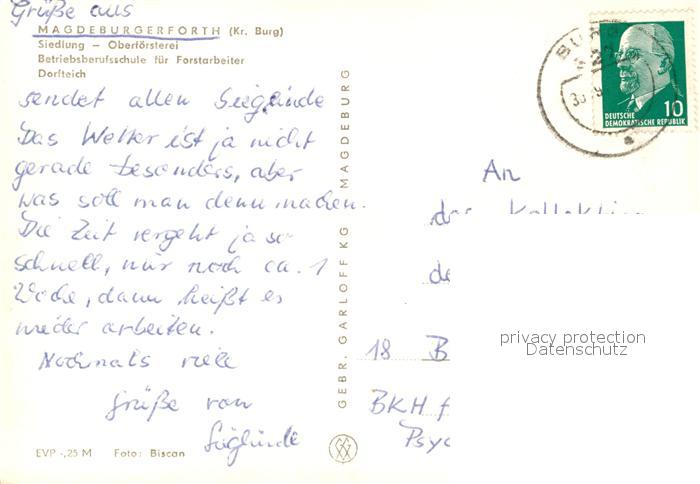 Grüße aus
MAGDEBURGERFORTH (Kr. Burg)
Siedlung – Oberförsterei
Betriebsberufsschule für Forstarbeiter
Dorfteich
sendet allen Sieglinde
Das Wetter ist ja nicht
gerade besonders, aber
was soll man denn machen.
Die Zeit vergeht ja so
schnell, nur noch ca. 1
Woche, dann heißt es
wieder arbeiten.
Nochmals viele
Grüße von
Sieglinde
EVP -,25 M Foto: Biscan
GEBR. GARLOFF KG MAGDEBURG
BURG
10
DEUTSCHE
DEMOKRATISCHE REPUBLIK
An
das Kollektiv
de
18 B
BKH f
Psyc
privacy protection
Datenschutz